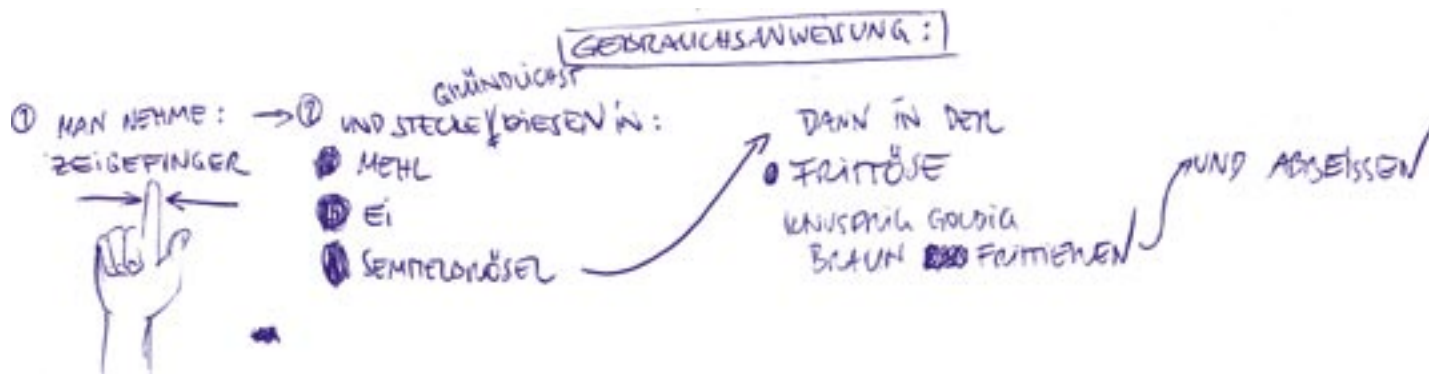 GEBRAUCHSANWEISUNG:
① MAN NEHME:
ZEIGEFINGER
→ ② UND STECKE GRÜNDLICHST DIESEN IN:
MEHL
EI
SEMMELBRÖSEL
DANN IN DER
FRITTÖSE
KNUSPRIG GOLDIG
BRAUN FRITTIEREN
UND ABBEISSEN